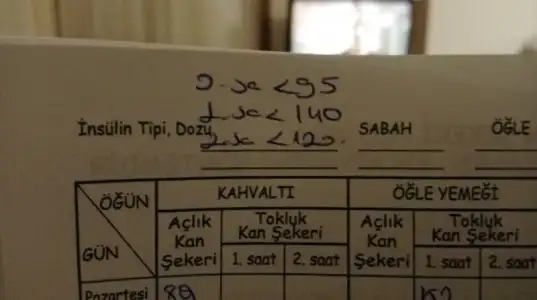 0-sc <95
1.sc< 140
2.sc <120.
İnsülin Tipi, Dozu SABAH ÖĞLE
ÖĞÜN KAHVALTI ÖĞLE YEMEĞİ
GÜN Açlık Kan Şekeri Tokluk Kan Şekeri Açlık Kan Şekeri Tokluk Kan Şekeri
1. saat 2. saat 1. saat 2. saat
Pazartesi 89